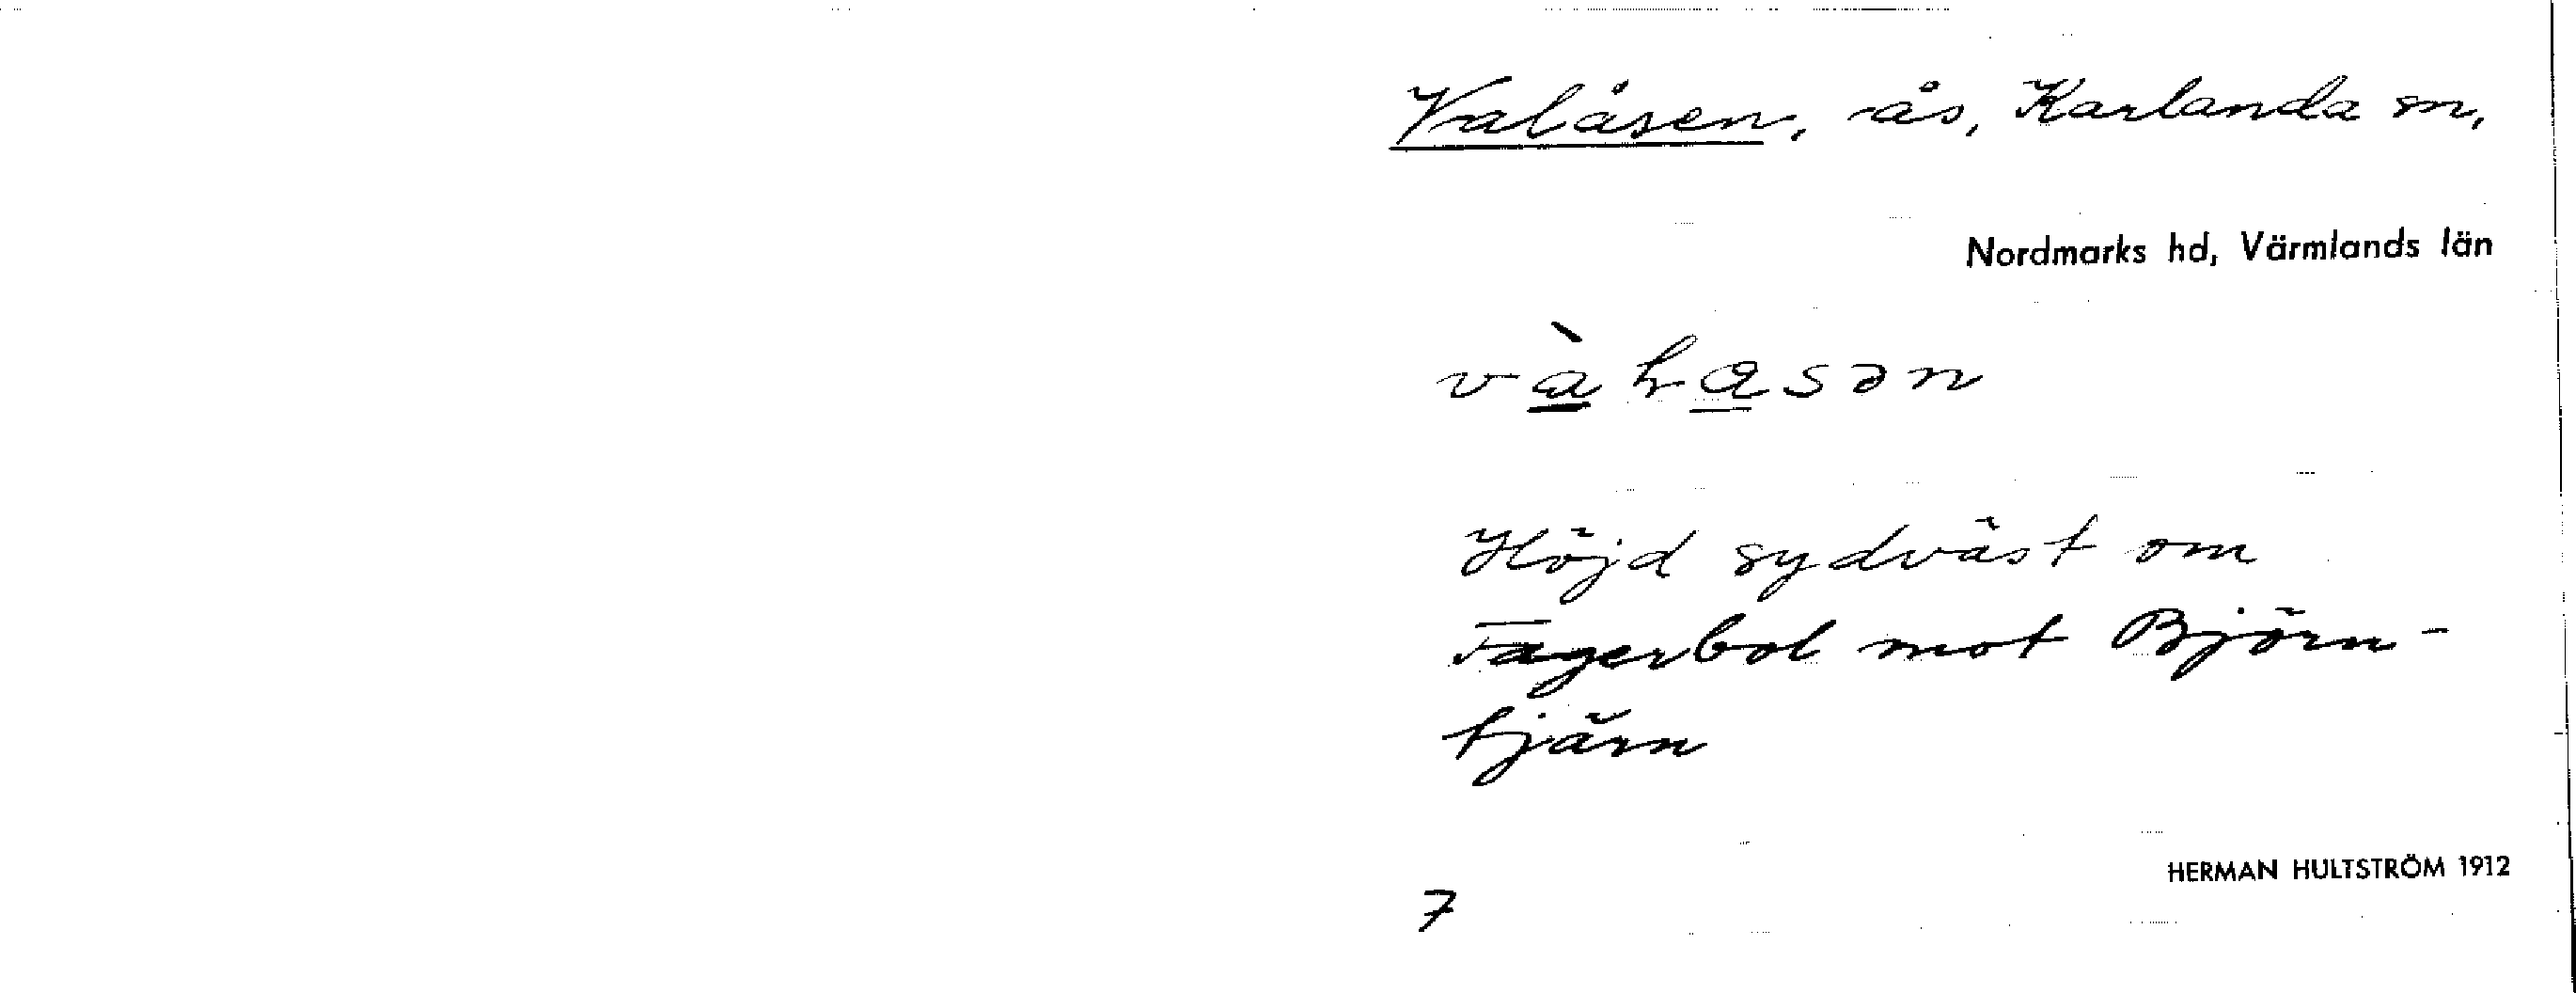 Valåsen, ås, Karlanda sn,
Nordmarks hd, Värmlands län
Höjd sydväst om
Fagerbol mot Björn-
tjärn
HERMAN HULTSTRÖM 1912
7